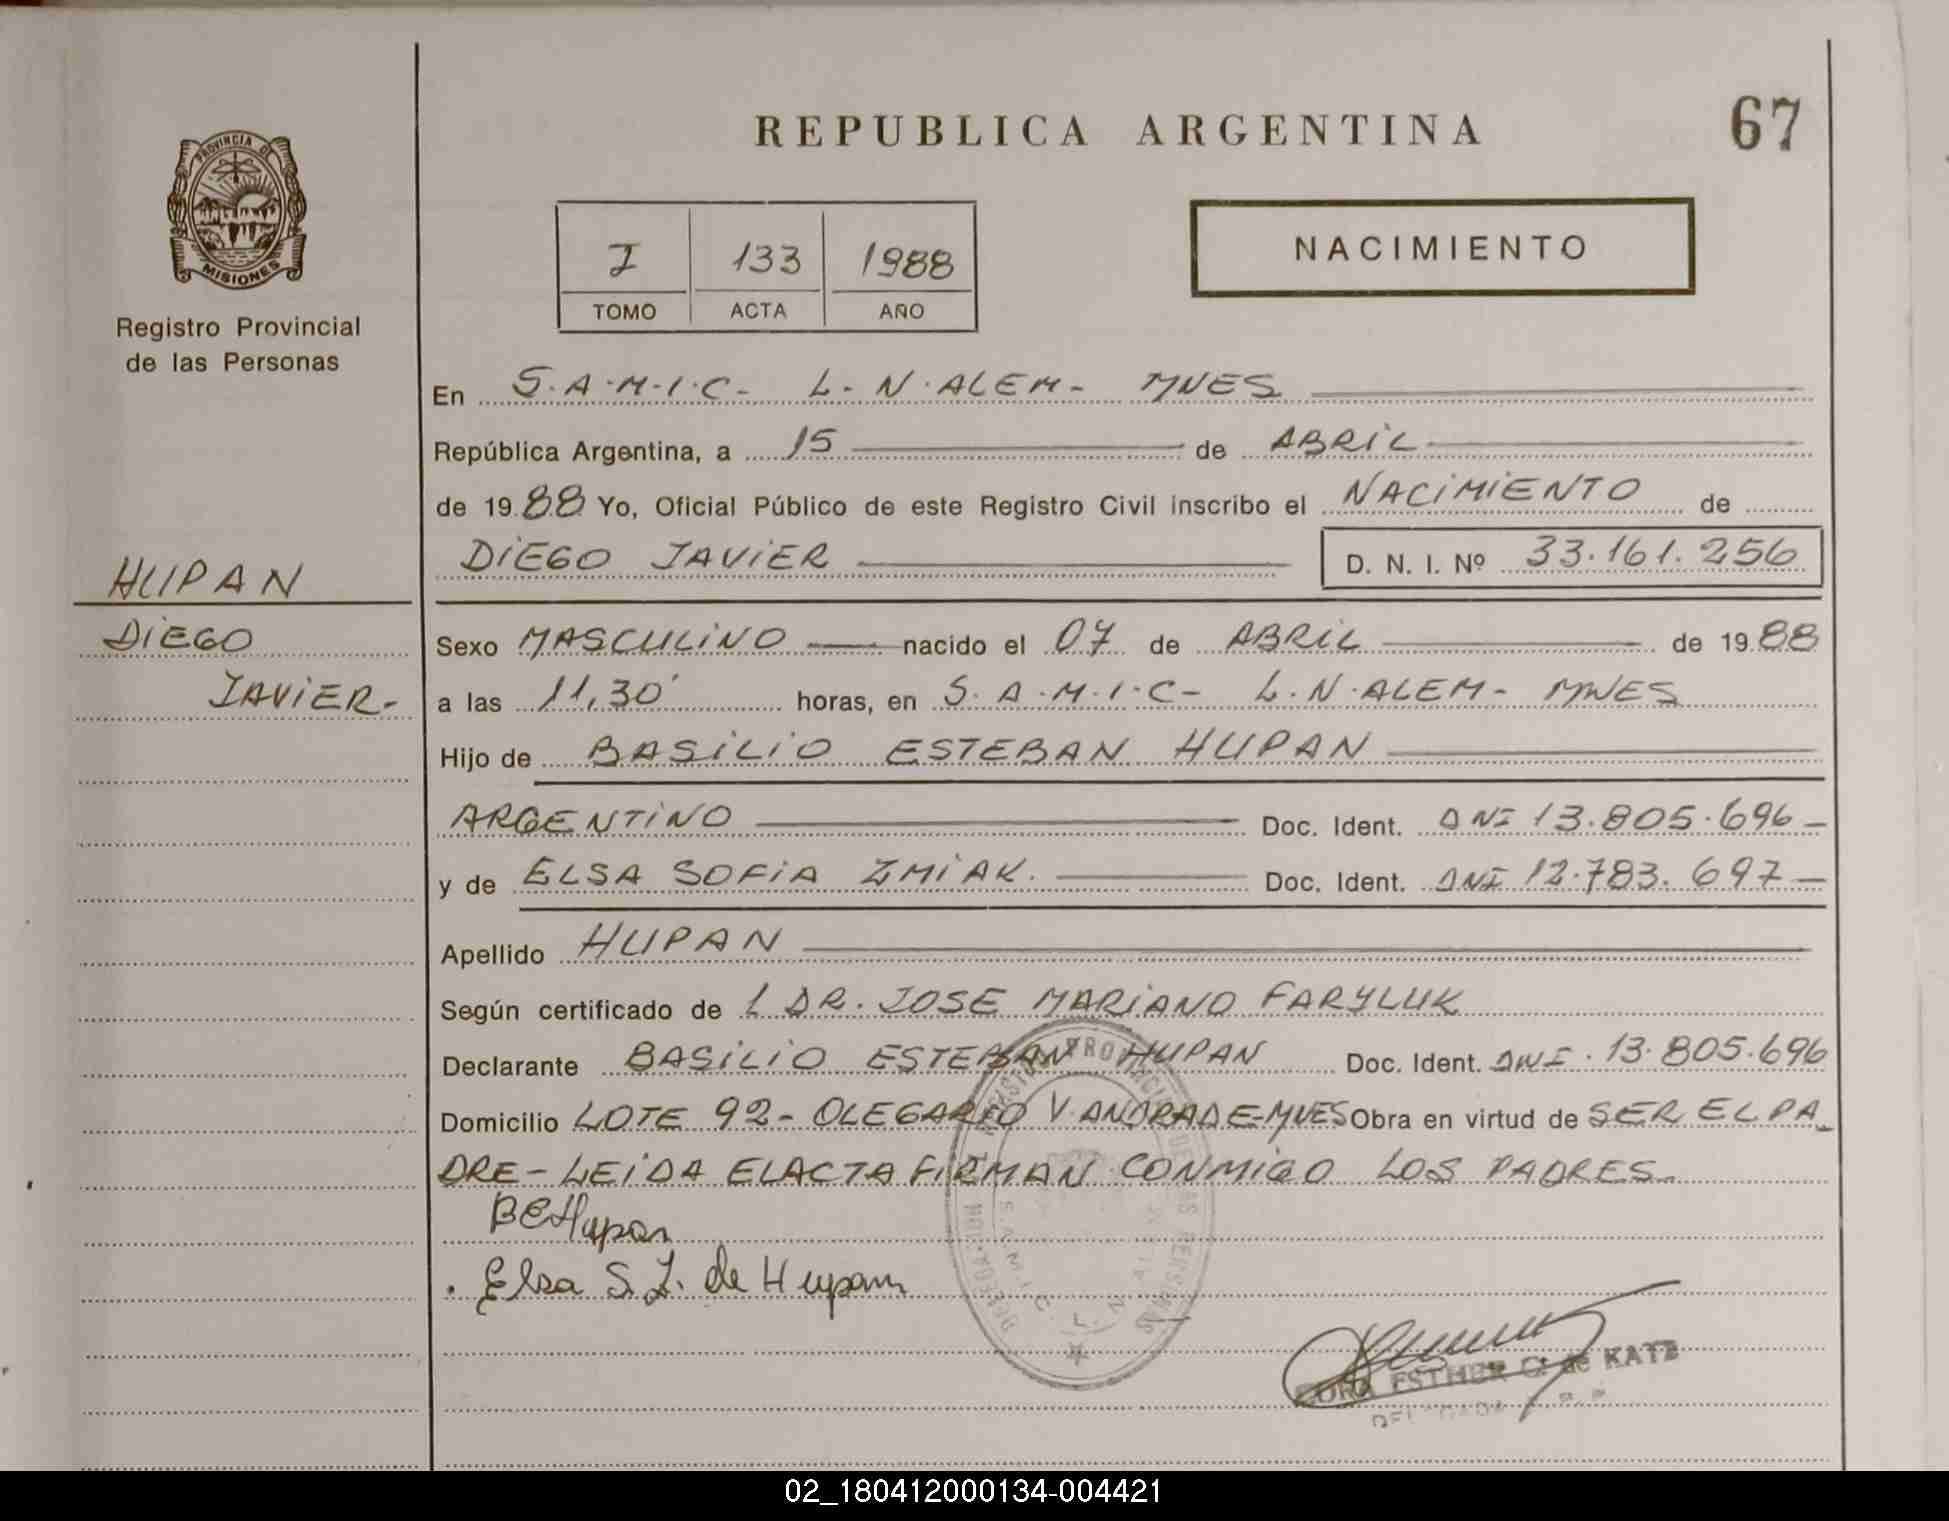 REPUBLICA ARGENTINA
67
PROVINCIA DE
MISIONES
Registro Provincial
de las Personas
I 133 1988
TOMO ACTA AÑO
NACIMIENTO
En S.A.M.I.C- L.N.ALEM- MNES
República Argentina, a 15 de ABRIL
de 1988 Yo, Oficial Público de este Registro Civil inscribo el NACIMIENTO de
DIEGO JAVIER D. N. I. Nº 33.161.256
HUPAN
DIEGO
JAVIER-
Sexo MASCULINO nacido el 07 de ABRIL de 1988
a las 11,30' horas, en S.A.M.I.C- L.N.ALEM- MNES
Hijo de BASILIO ESTEBAN HUPAN
ARGENTINO Doc. Ident. DNI 13.805.696-
y de ELSA SOFIA ZMIAK. Doc. Ident. DNI 12.783.697-
Apellido HUPAN
Según certificado de L DR. JOSE MARIANO FARYLUK
Declarante BASILIO ESTEBAN HUPAN Doc. Ident. DNI. 13.805.696
Domicilio LOTE 92- OLEGARIO V. ANDRADE-MNES Obra en virtud de SER EL PA_
DRE- LEIDA EL ACTA FIRMAN CONMIGO LOS PADRES.
BEHupan
. Elsa S. Z. de Hupan
ESTHER C. de KATZ
02_180412000134-004421